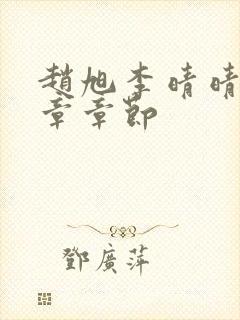 趙旭李晴晴
章章節
鄧廣萍